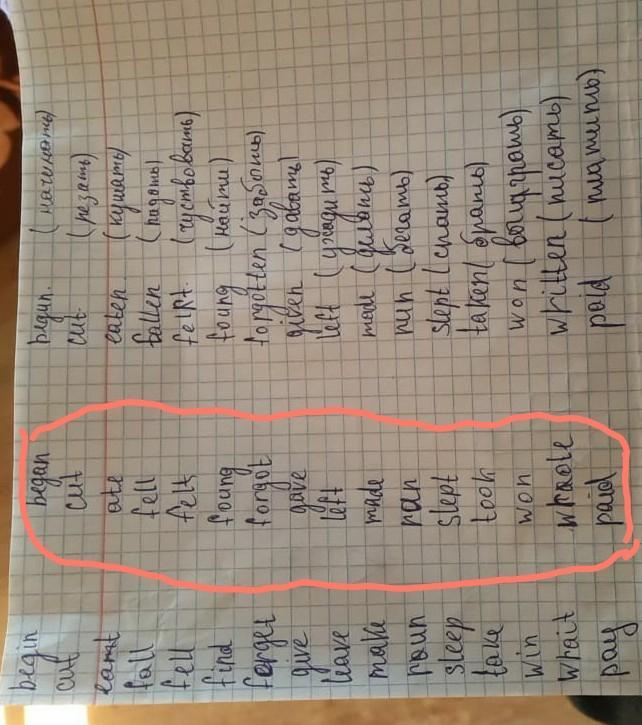 begin began begun. (начинать)
cut cut cut. (резать)
eamt ate eaten (кушать)
fall fell fallen (падать)
fell felt felt. (чуствовать)
find found found (найти)
forget forgot forgotten (забыть)
give gave given (давать)
leave left left (уходить)
make made made (делать)
roun ran run (бегать)
sleep slept slept (спать)
take took taken (брать)
win won won (выиграть)
whait whrote written (писать)
pay paid paid (платить)